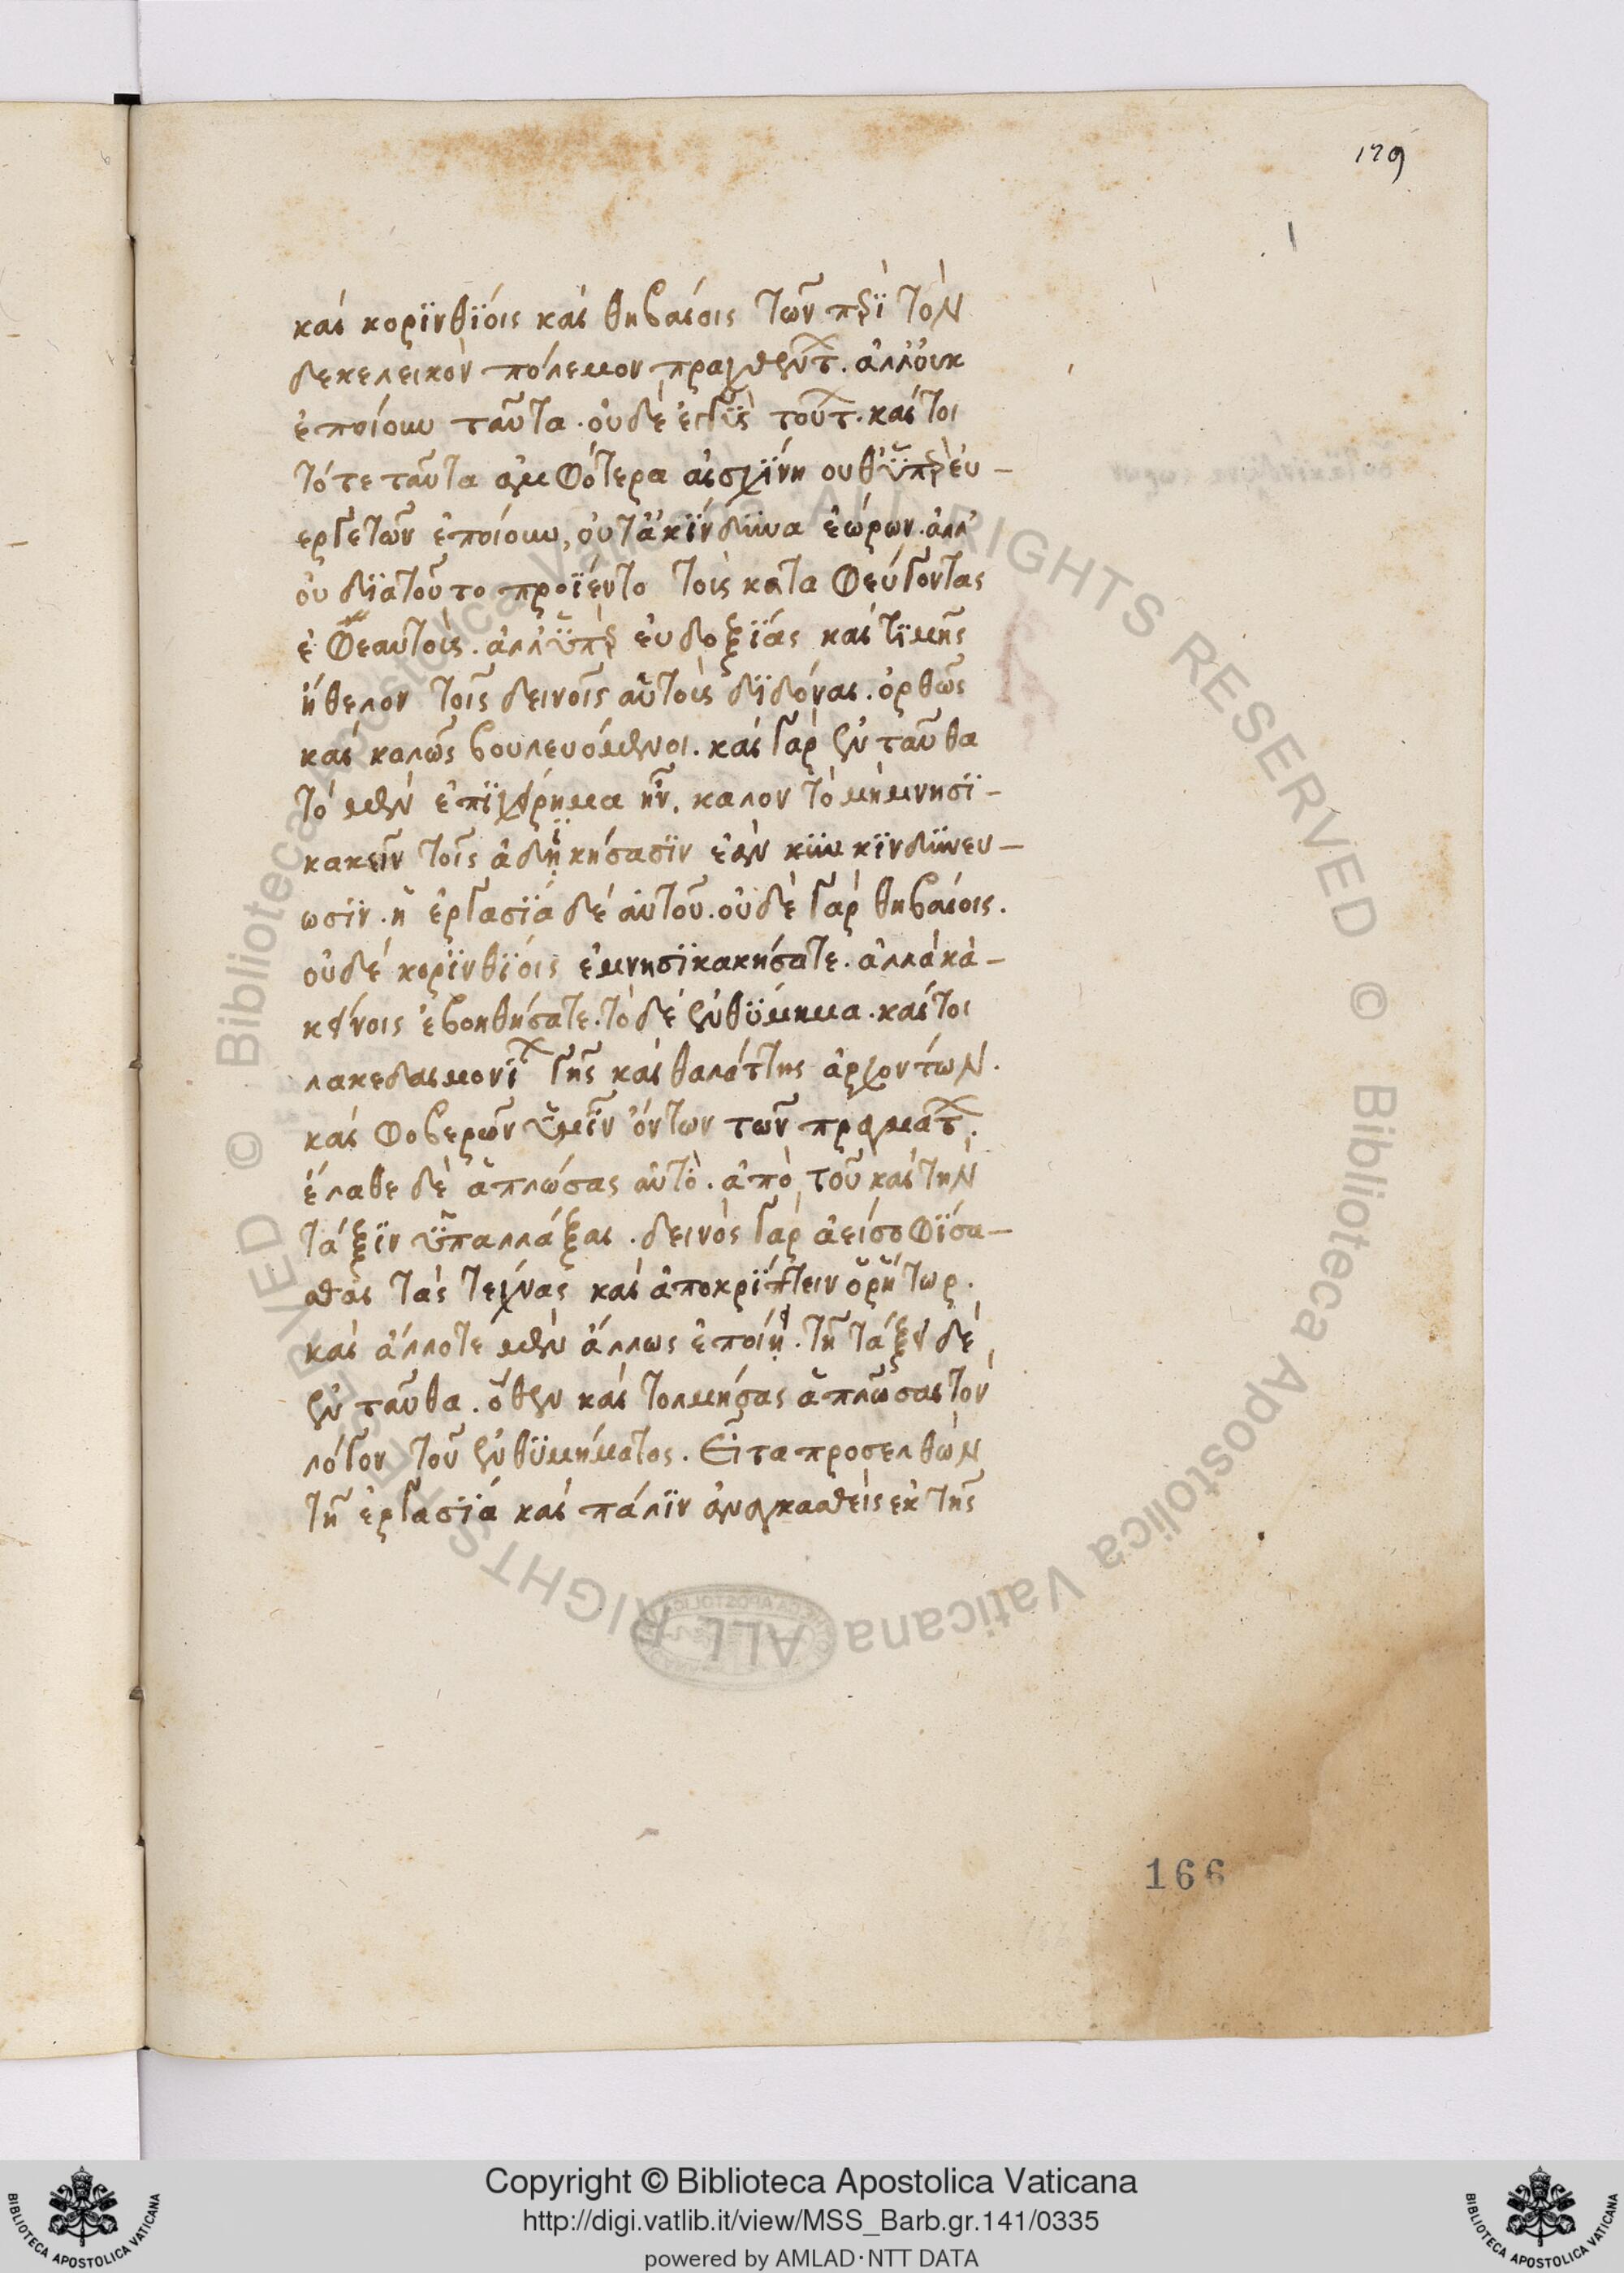 179
καὶ κορϊνθϊοις καὶ θηβαίοις τῶν πρϊ τὸν
δεκελεικὸν πόλεμον πραχθέντ. ἀλλ' οὐκ
ἐποίουν ταῦτα. οὐδὲ ἐγγϊς τούτ. καίτοι
τότε ταῦτα ἀμφότερα αἰσχίνη οὐθ' ϋπὲρ εὐ-
εργετῶν ἐποίουν, οὔτ' ἀκϊνδϋνα ἑώρων. ἀλλ'
οὐ δϊατοῦτο προϊεντο τοὺς καταφεύγοντας
ἐφεαυτοὺς. ἀλλ' ϋπὲρ εὐδοξϊας καὶ τϊμῆς
ἤθελον τοῖς δεινοῖς αὑτοὺς δϊδόναι. ὀρθῶς
καὶ καλῶς βουλευόμενοι. καὶ γὰρ ἐνταῦθα
τὸ μὲν ἐπϊχείρημα ἦν. καλὸν τὸ μὴ μνησϊ-
κακεῖν τοῖς ἀδηκήσασϊν ἐὰν κϊνδϋνεύ-
ωσϊν. ἡ ἐργασϊα δὲ αὐτοῦ. οὐδὲ γὰρ θηβαίοις.
οὐδὲ κορϊνθϊοις ἐμνησϊκακήσατε. ἀλλὰ κἀ-
κείνοις ἐβοηθήσατε. τὸ δὲ ἐνθϋμημα. καίτοι
λακεδαιμονϊ γῆς καὶ θαλάττης ἀρχόντων.
καὶ φοβερῶν ϋμῖν ὄντων τῶν πραγματ.
ἔλαθε δὲ ἁπλώσας αὐτὸ. ἀπὸ τοῦ καὶ τὴν
τάξϊν ϋπαλλάξαι. δεινὸς γὰρ ἀεὶ σοφϊσα-
σθαι τὰς τέχνας καὶ ἀποκρϊπτειν ὁ ῥήτωρ.
καὶ ἄλλοτε μὲν ἄλλως ἐποίη. τῇ τάξει δὲ
ἐνταῦθα. ὅθεν καὶ τολμήσας ἁπλῶσαι τὸν
λόγον τοῦ ἐνθϋμήματος. Εἶτα προσελθὼν
τῇ ἐργασϊα καὶ πάλϊν ἀναγκασθεὶς ἐκ τῆς
166
Copyright © Biblioteca Apostolica Vaticana
http://digi.vatlib.it/view/MSS_Barb.gr.141/0335
powered by AMLAD·NTT DATA